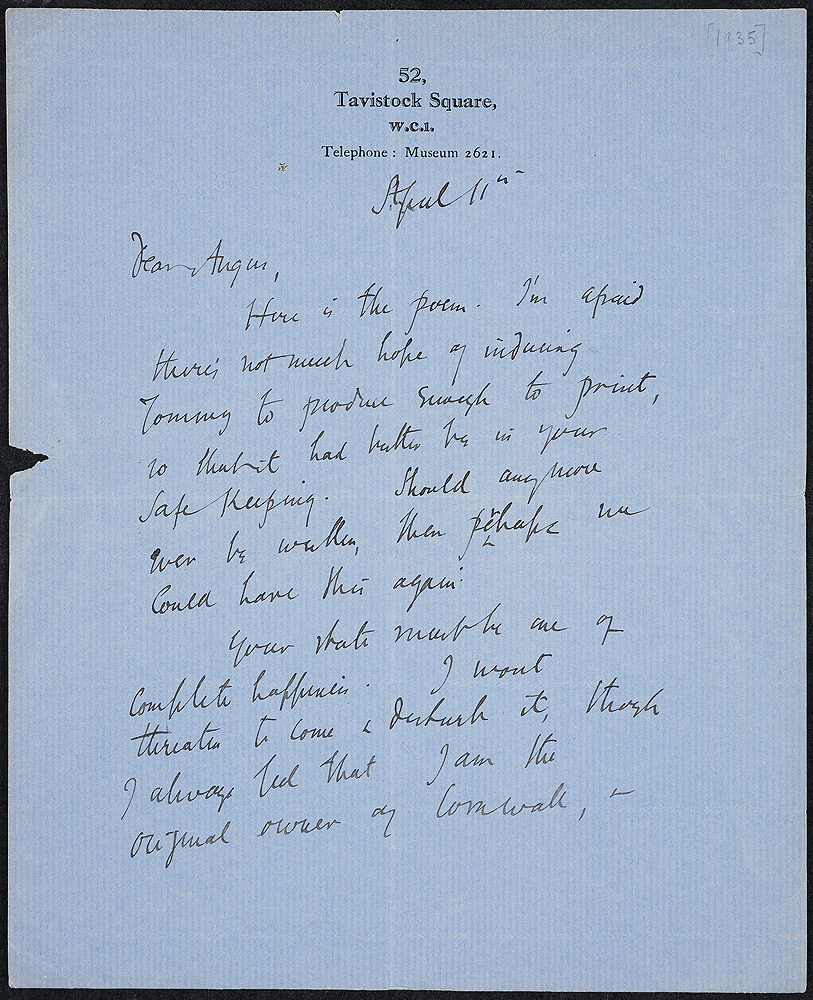 [1935]
52,
Tavistock Square,
W.C.1.
Telephone : Museum 2621.
April 11th
Dear Angus,
Here is the poem. I'm afraid
there's not much hope of inducing
Tommy to produce enough to print,
so that it had better be in your
safe keeping. Should any more
ever be written, then perhaps we
could have this again.
Your state must be one of
complete happiness. I wont
threaten to come & disturb it, though
I always feel that I am the
original owner of Cornwall, –